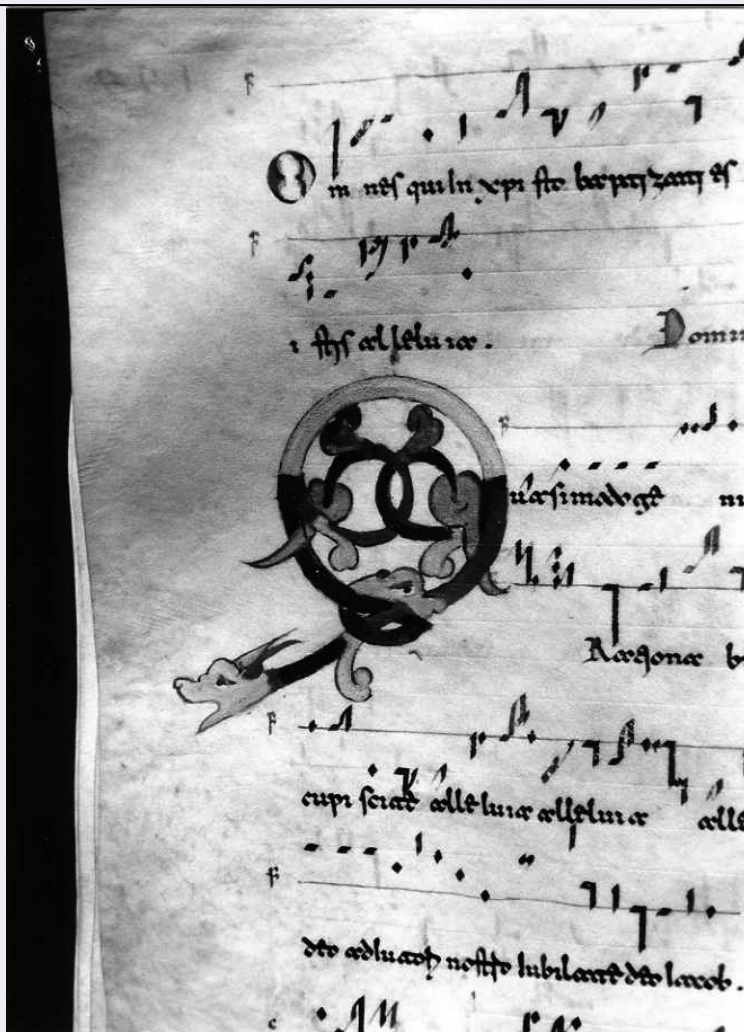 Om nes qui In xpi sto baptizati es
i stis alleluia. Domin
Quasi modo ge ni
Rationa b
cupi scite alleluia alleluia alle
deo adiutori nostro Iubilate deo Iacob.